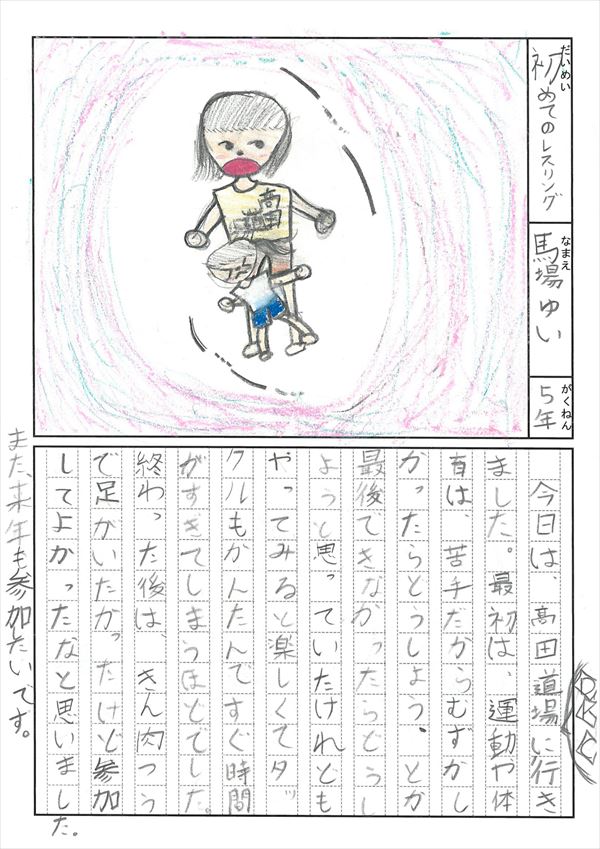 だいめい
初めてのレスリング
なまえ
馬場ゆい
がくねん
5年
高田
道場
今日は、高田道場に行き
ました。最初は、運動や体
育は、苦手だからむずかし
かったらどうしよう、とか
最後できなかったらどうし
ようと思っていたけれども
やってみると楽しくてタッ
クルもかんたんですぐ時間
がすぎてしまうほどでした。
終わった後は、きん肉つう
で足がいたかったけど参加
してよかったなと思いました。
また、来年も参加したいです。